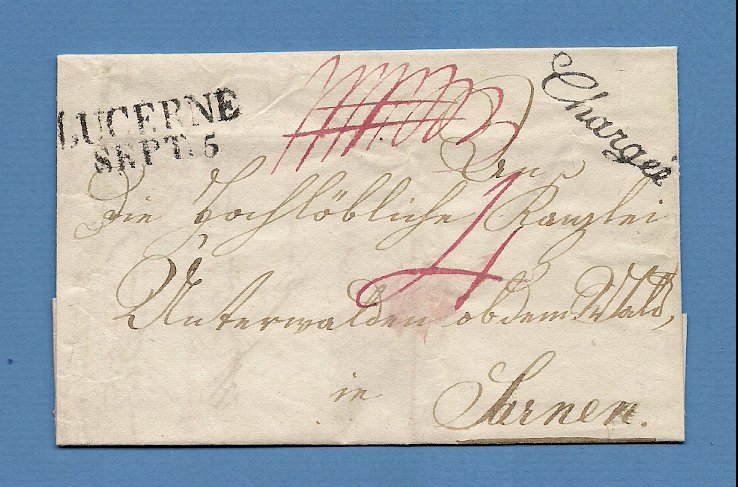 LUCERNE
SEPT. 5
Chargée
An
Die Hochlöbliche Kanzlei
4
Unterwalden ob dem Wald,
in
Sarnen.